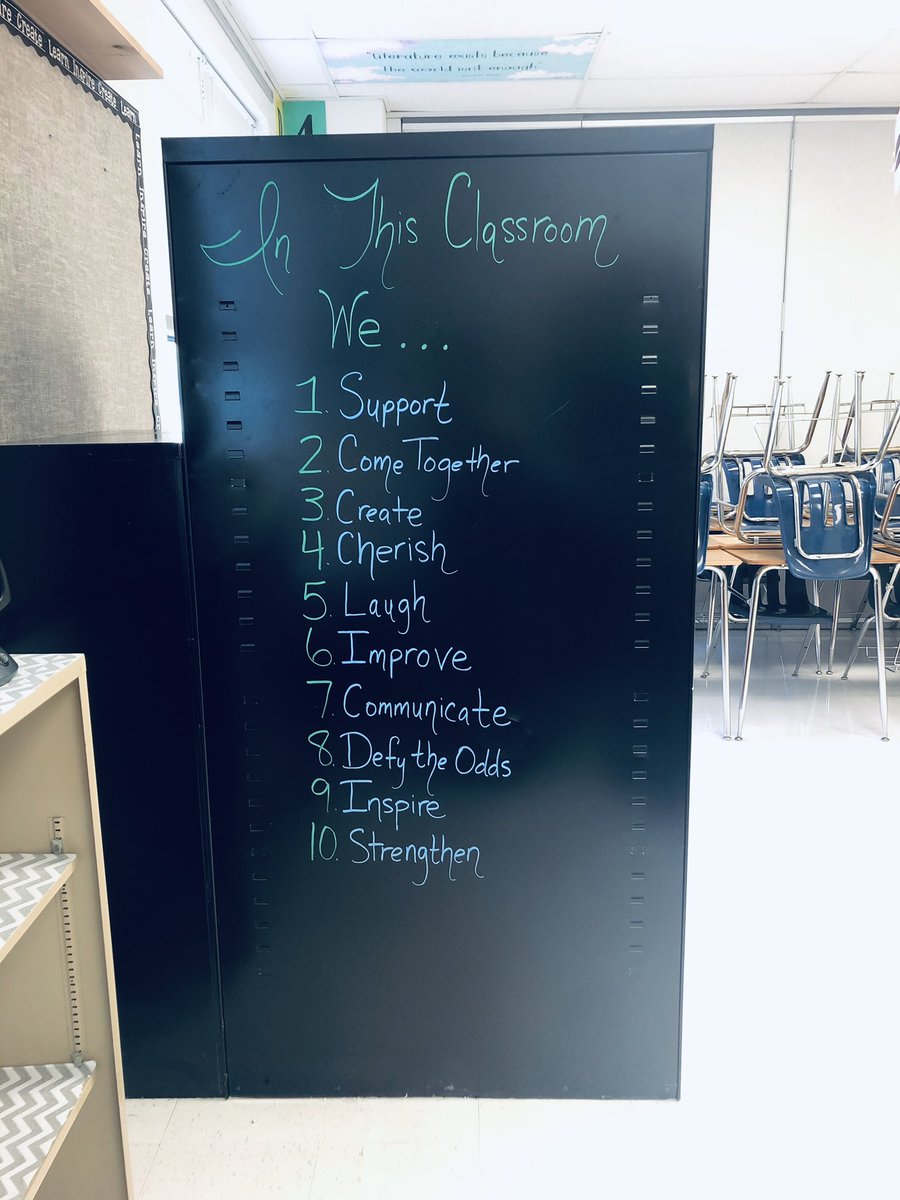 Learn Inspire Create Learn
Learn Inspire Create Learn
"Literature exists because
the world isn't enough"
4
In This Classroom
We...
1. Support
2. Come Together
3. Create
4. Cherish
5. Laugh
6. Improve
7. Communicate
8. Defy the Odds
9. Inspire
10. Strengthen